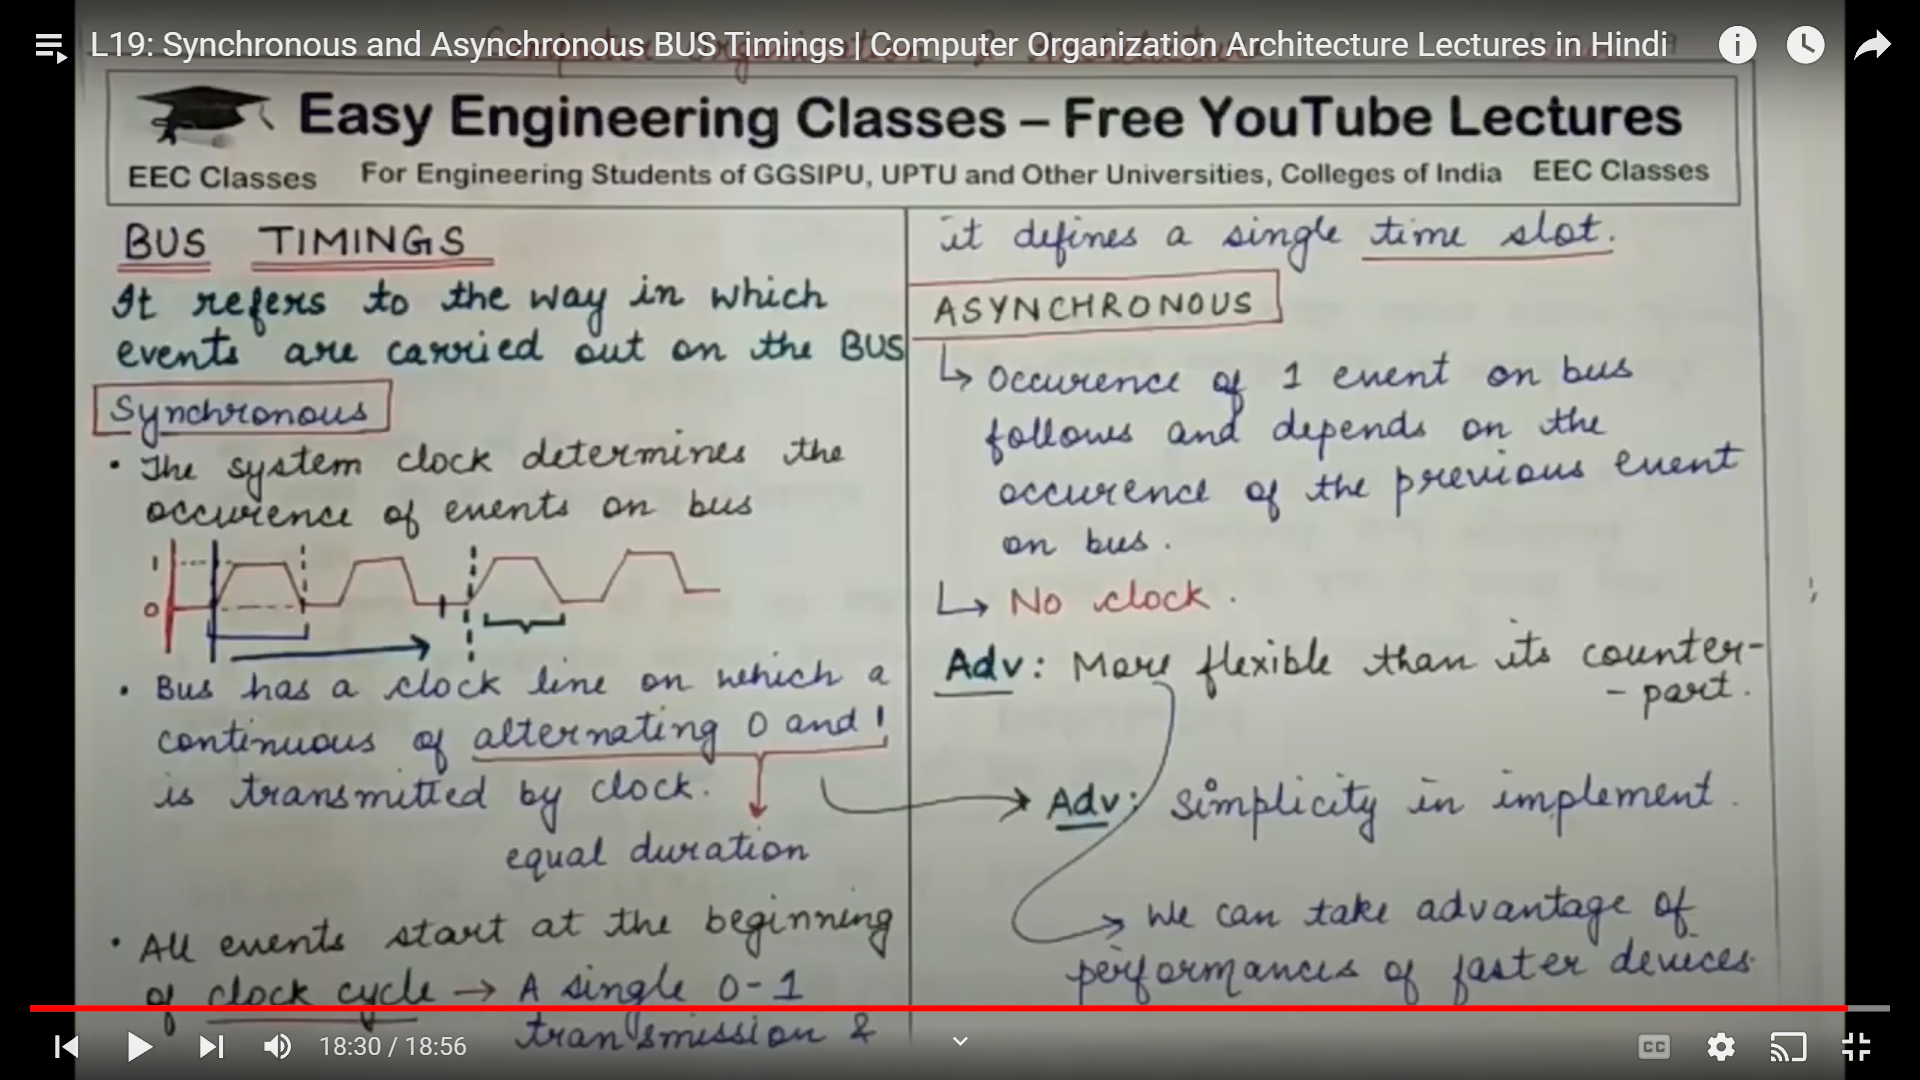 L19: Synchronous and Asynchronous BUS Timings | Computer Organization Architecture Lectures in Hindi
Easy Engineering Classes – Free YouTube Lectures
EEC Classes For Engineering Students of GGSIPU, UPTU and Other Universities, Colleges of India EEC Classes
BUS TIMINGS
It refers to the way in which
events are carried out on the BUS
Synchronous
• The system clock determines the
occurence of events on bus
1
0
• Bus has a clock line on which a
continuous of alternating 0 and 1
is transmitted by clock.
equal duration
• All events start at the beginning
of clock cycle → A single 0-1
transmission &
it defines a single time slot.
ASYNCHRONOUS
↳ Occurence of 1 event on bus
follows and depends on the
occurence of the previous event
on bus.
↳ No clock.
Adv: More flexible than its counter-
- part.
Adv: Simplicity in implement.
→ We can take advantage of
performances of faster devices.
18:30 / 18:56
CC